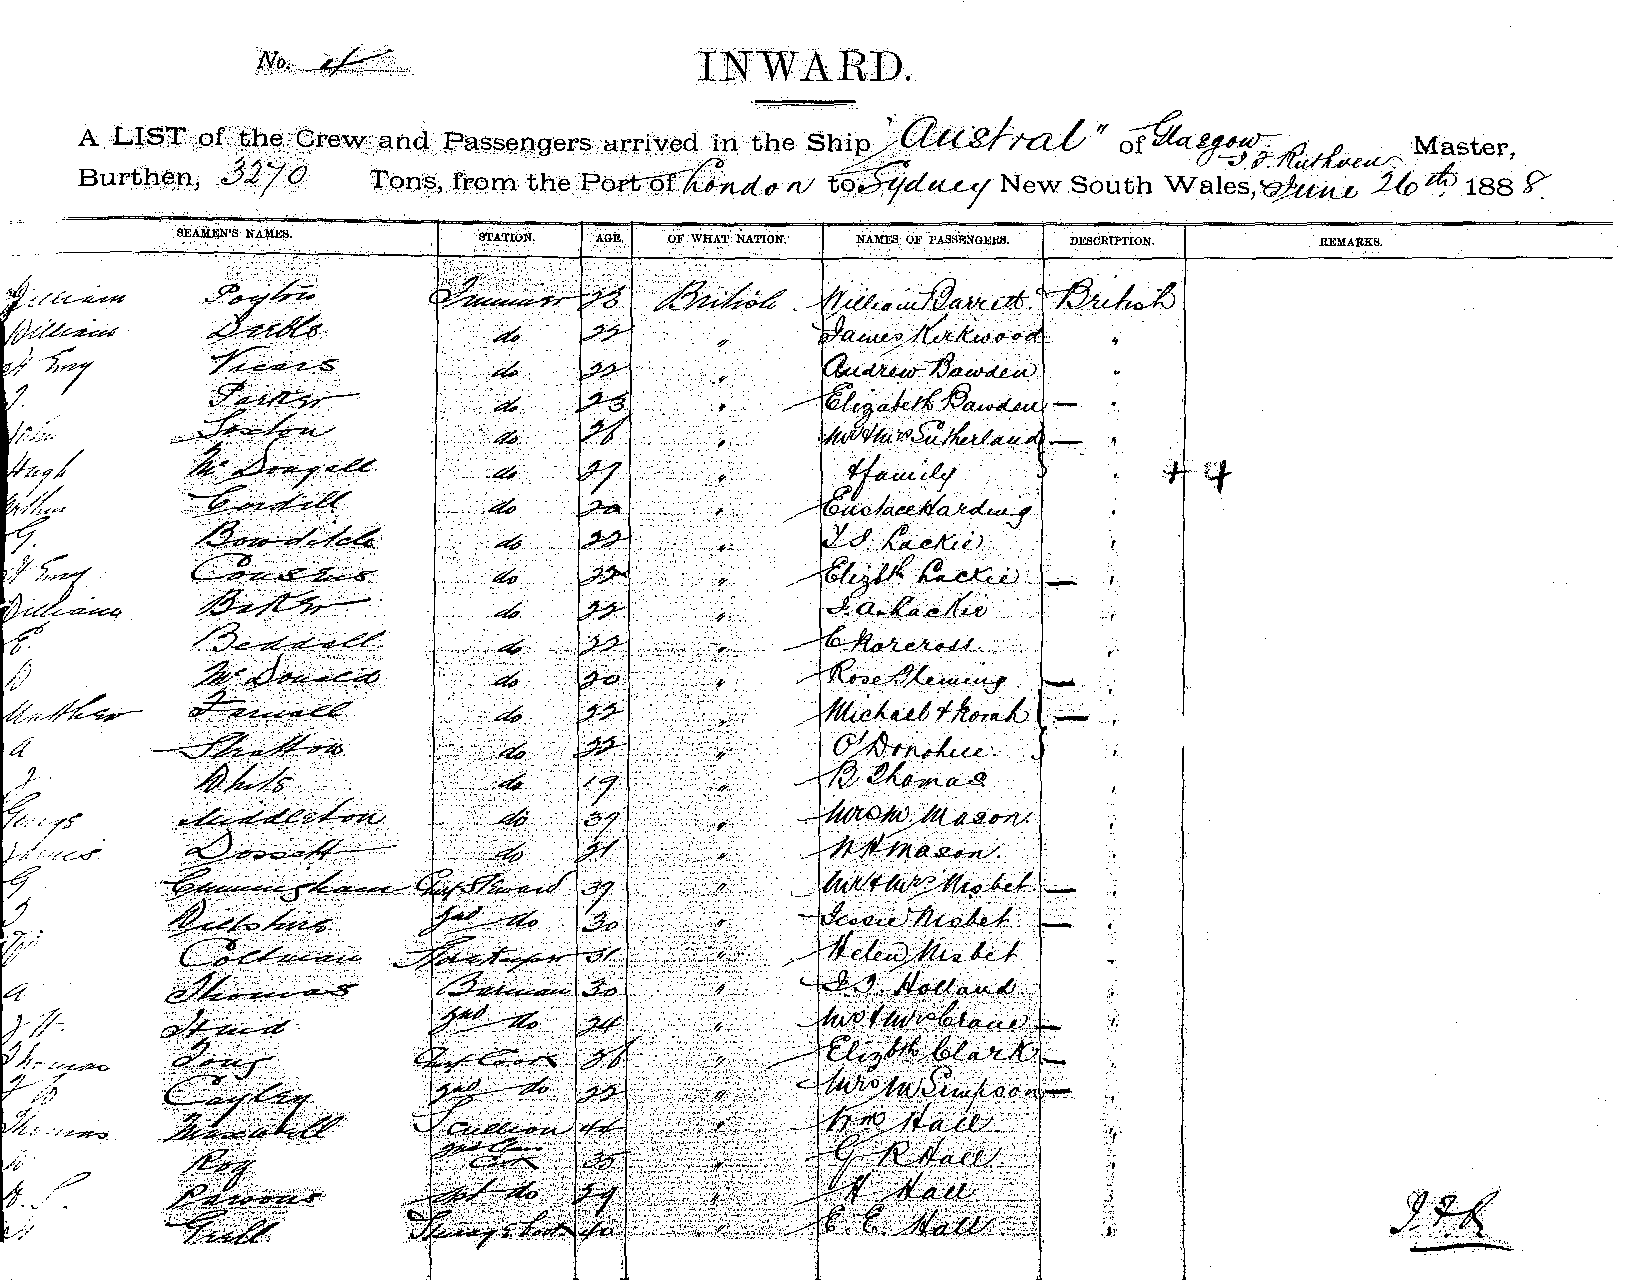 No. 4
INWARD.
A LIST of the Crew and Passengers arrived in the Ship "Austral" of Glasgow J. F. Ruthven Master,
Burthen, 3270 Tons, from the Port of London to Sydney New South Wales, June 26th 1888.
SEAMEN'S NAMES. STATION. AGE. OF WHAT NATION. NAMES OF PASSENGERS. DESCRIPTION. REMARKS.
William Poyton Trimmer 23 British William Barrett British
William Dibble do 22 " James Kirkwood "
Hy Vicars do 22 " Andrew Bawden "
J. Parker do 23 " Elizabeth Bawden — "
John Sexton do 26 " Mr & Mrs Sutherland — "
Hugh McDougall do 27 " & family " + 4
Arthur Cordell do 20 " Eustace Harding "
G Bowditch do 22 " "
Couzens do 22 " Elizbth Lackie — "
William Baker do 22 " J. A. Lackie "
E. Beddall do 22 " C Norcross "
D McDonald do 20 " Rose Fleming — "
Matthew Farwell do 22 " Michael & Norah — "
A Stratton do 22 " O'Donohue "
J White do 19 " B Thomas "
George Middleton do 39 " Mrs M. Mason "
James Dossett do 21 " W H Mason. "
G Cunningham Chf Steward 39 " Mr & Mrs Nisbet — "
J Wiltshire 2nd do 30 " Jessie Nisbet — "
W Coltman Storekeeper 31 " Helen Nisbet "
A Thomas Barman 30 " J. J. Holland "
J H 2nd do 24 " Mr & Mrs Crane — "
Thomas Tong Chf Cook 36 " Elizbth Clark — "
Cayley 2nd do 22 " Mrs M Simpson — "
Thomas Maxwell Scullion 44 " Wm Hall "
Roy Cook 35 " G R Hall "
Parsons do 29 " H Hall "
Grill 40 " E. E. Hall "
J. F. R